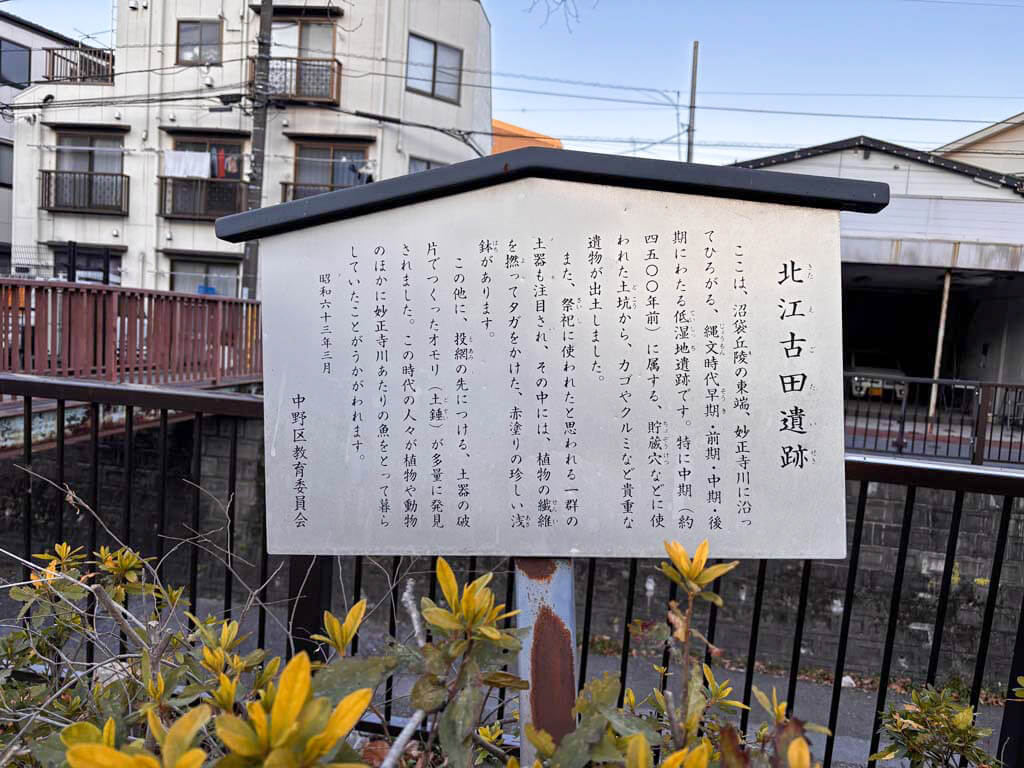 北江古田遺跡
ここは、沼袋丘陵の東端、妙正寺川に沿っ
てひろがる、縄文時代早期・前期・中期・後
期にわたる低湿地遺跡です。特に中期（約
四五〇〇年前）に属する、貯蔵穴などに使
われた土坑から、カゴやクルミなど貴重な
遺物が出土しました。
また、祭祀に使われたと思われる一群の
土器も注目され、その中には、植物の繊維
を撚ってタガをかけた、赤塗りの珍しい浅
鉢があります。
この他に、投網の先につける、土器の破
片でつくったオモリ（土錘）が多量に発見
されました。この時代の人々が植物や動物
のほかに妙正寺川あたりの魚をとって暮ら
していたことがうかがわれます。
昭和六十三年三月
中野区教育委員会